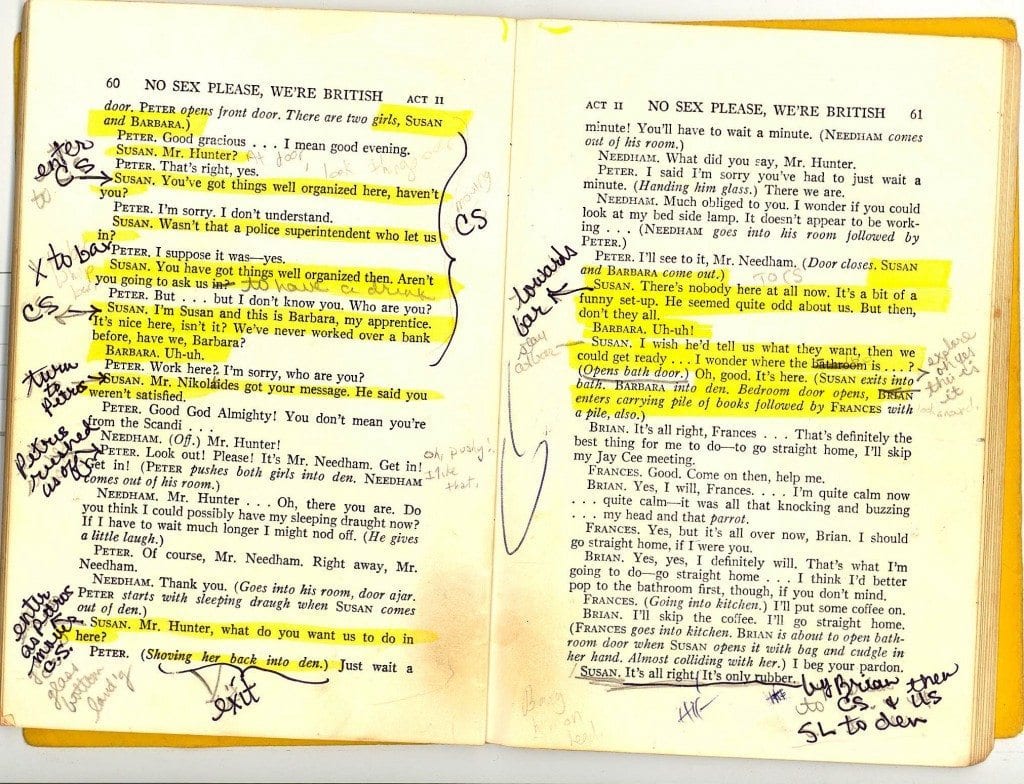 60 NO SEX PLEASE, WE'RE BRITISH ACT II
door. PETER opens front door. There are two girls, SUSAN
and BARBARA.)
PETER. Good gracious . . . I mean good evening.
SUSAN. Mr. Hunter?
At door
PETER. That's right, yes.
enter
to CS
SUSAN. You've got things well organized here, haven't
you?
PETER. I'm sorry. I don't understand.
CS
SUSAN. Wasn't that a police superintendent who let us
in?
X to bar
PETER. I suppose it was—yes.
SUSAN. You have got things well organized then. Aren't
you going to ask us in? to have a drink
PETER. But . . . but I don't know you. Who are you?
CS
SUSAN. I'm Susan and this is Barbara, my apprentice.
It's nice here, isn't it? We've never worked over a bank
before, have we, Barbara?
BARBARA. Uh-uh.
PETER. Work here? I'm sorry, who are you?
turn
to
SUSAN. Mr. Nikolaides got your message. He said you
weren't satisfied.
PETER. Good God Almighty! You don't mean you're
from the Scandi . . .
NEEDHAM. (Off.) Mr. Hunter!
PETER. Look out! Please! It's Mr. Needham. Get in!
Get in! (PETER pushes both girls into den. NEEDHAM
comes out of his room.)
Oh, pushy!
I like
that.
NEEDHAM. Mr. Hunter . . . Oh, there you are. Do
you think I could possibly have my sleeping draught now?
If I have to wait much longer I might nod off. (He gives
a little laugh.)
PETER. Of course, Mr. Needham. Right away, Mr.
Needham.
NEEDHAM. Thank you. (Goes into his room, door ajar.
PETER starts with sleeping draugh when SUSAN comes
out of den.)
enter
as
C.S.
SUSAN. Mr. Hunter, what do you want us to do in
here?
PETER. (Shoving her back into den.) Just wait a
exit
ACT II NO SEX PLEASE, WE'RE BRITISH 61
minute! You'll have to wait a minute. (NEEDHAM comes
out of his room.)
NEEDHAM. What did you say, Mr. Hunter.
PETER. I said I'm sorry you've had to just wait a
minute. (Handing him glass.) There we are.
NEEDHAM. Much obliged to you. I wonder if you could
look at my bed side lamp. It doesn't appear to be work-
ing . . . (NEEDHAM goes into his room followed by
PETER.)
PETER. I'll see to it, Mr. Needham. (Door closes. SUSAN
and BARBARA come out.) to CS
towards
bar
SUSAN. There's nobody here at all now. It's a bit of a
funny set-up. He seemed quite odd about us. But then,
don't they all.
BARBARA. Uh-uh!
SUSAN. I wish he'd tell us what they want, then we
could get ready . . . I wonder where the bathroom is . . . ?
(Opens bath door.) Oh, good. It's here. (SUSAN exits into
bath. BARBARA into den. Bedroom door opens, BRIAN
enters carrying pile of books followed by FRANCES with
a pile, also.)
explore
BRIAN. It's all right, Frances . . . That's definitely the
best thing for me to do—to go straight home, I'll skip
my Jay Cee meeting.
FRANCES. Good. Come on then, help me.
BRIAN. Yes, I will, Frances. . . . I'm quite calm now
. . . quite calm—it was all that knocking and buzzing
. . . my head and that parrot.
FRANCES. Yes, but it's all over now, Brian. I should
go straight home, if I were you.
BRIAN. Yes, yes, I definitely will. That's what I'm
going to do—go straight home . . . I think I'd better
pop to the bathroom first, though, if you don't mind.
FRANCES. (Going into kitchen.) I'll put some coffee on.
BRIAN. I'll skip the coffee. I'll go straight home.
(FRANCES goes into kitchen. BRIAN is about to open bath-
room door when SUSAN opens it with bag and cudgle in
her hand. Almost colliding with her.) I beg your pardon.
SUSAN. It's all right. It's only rubber.
by Brian
to CS & then US
SL to den